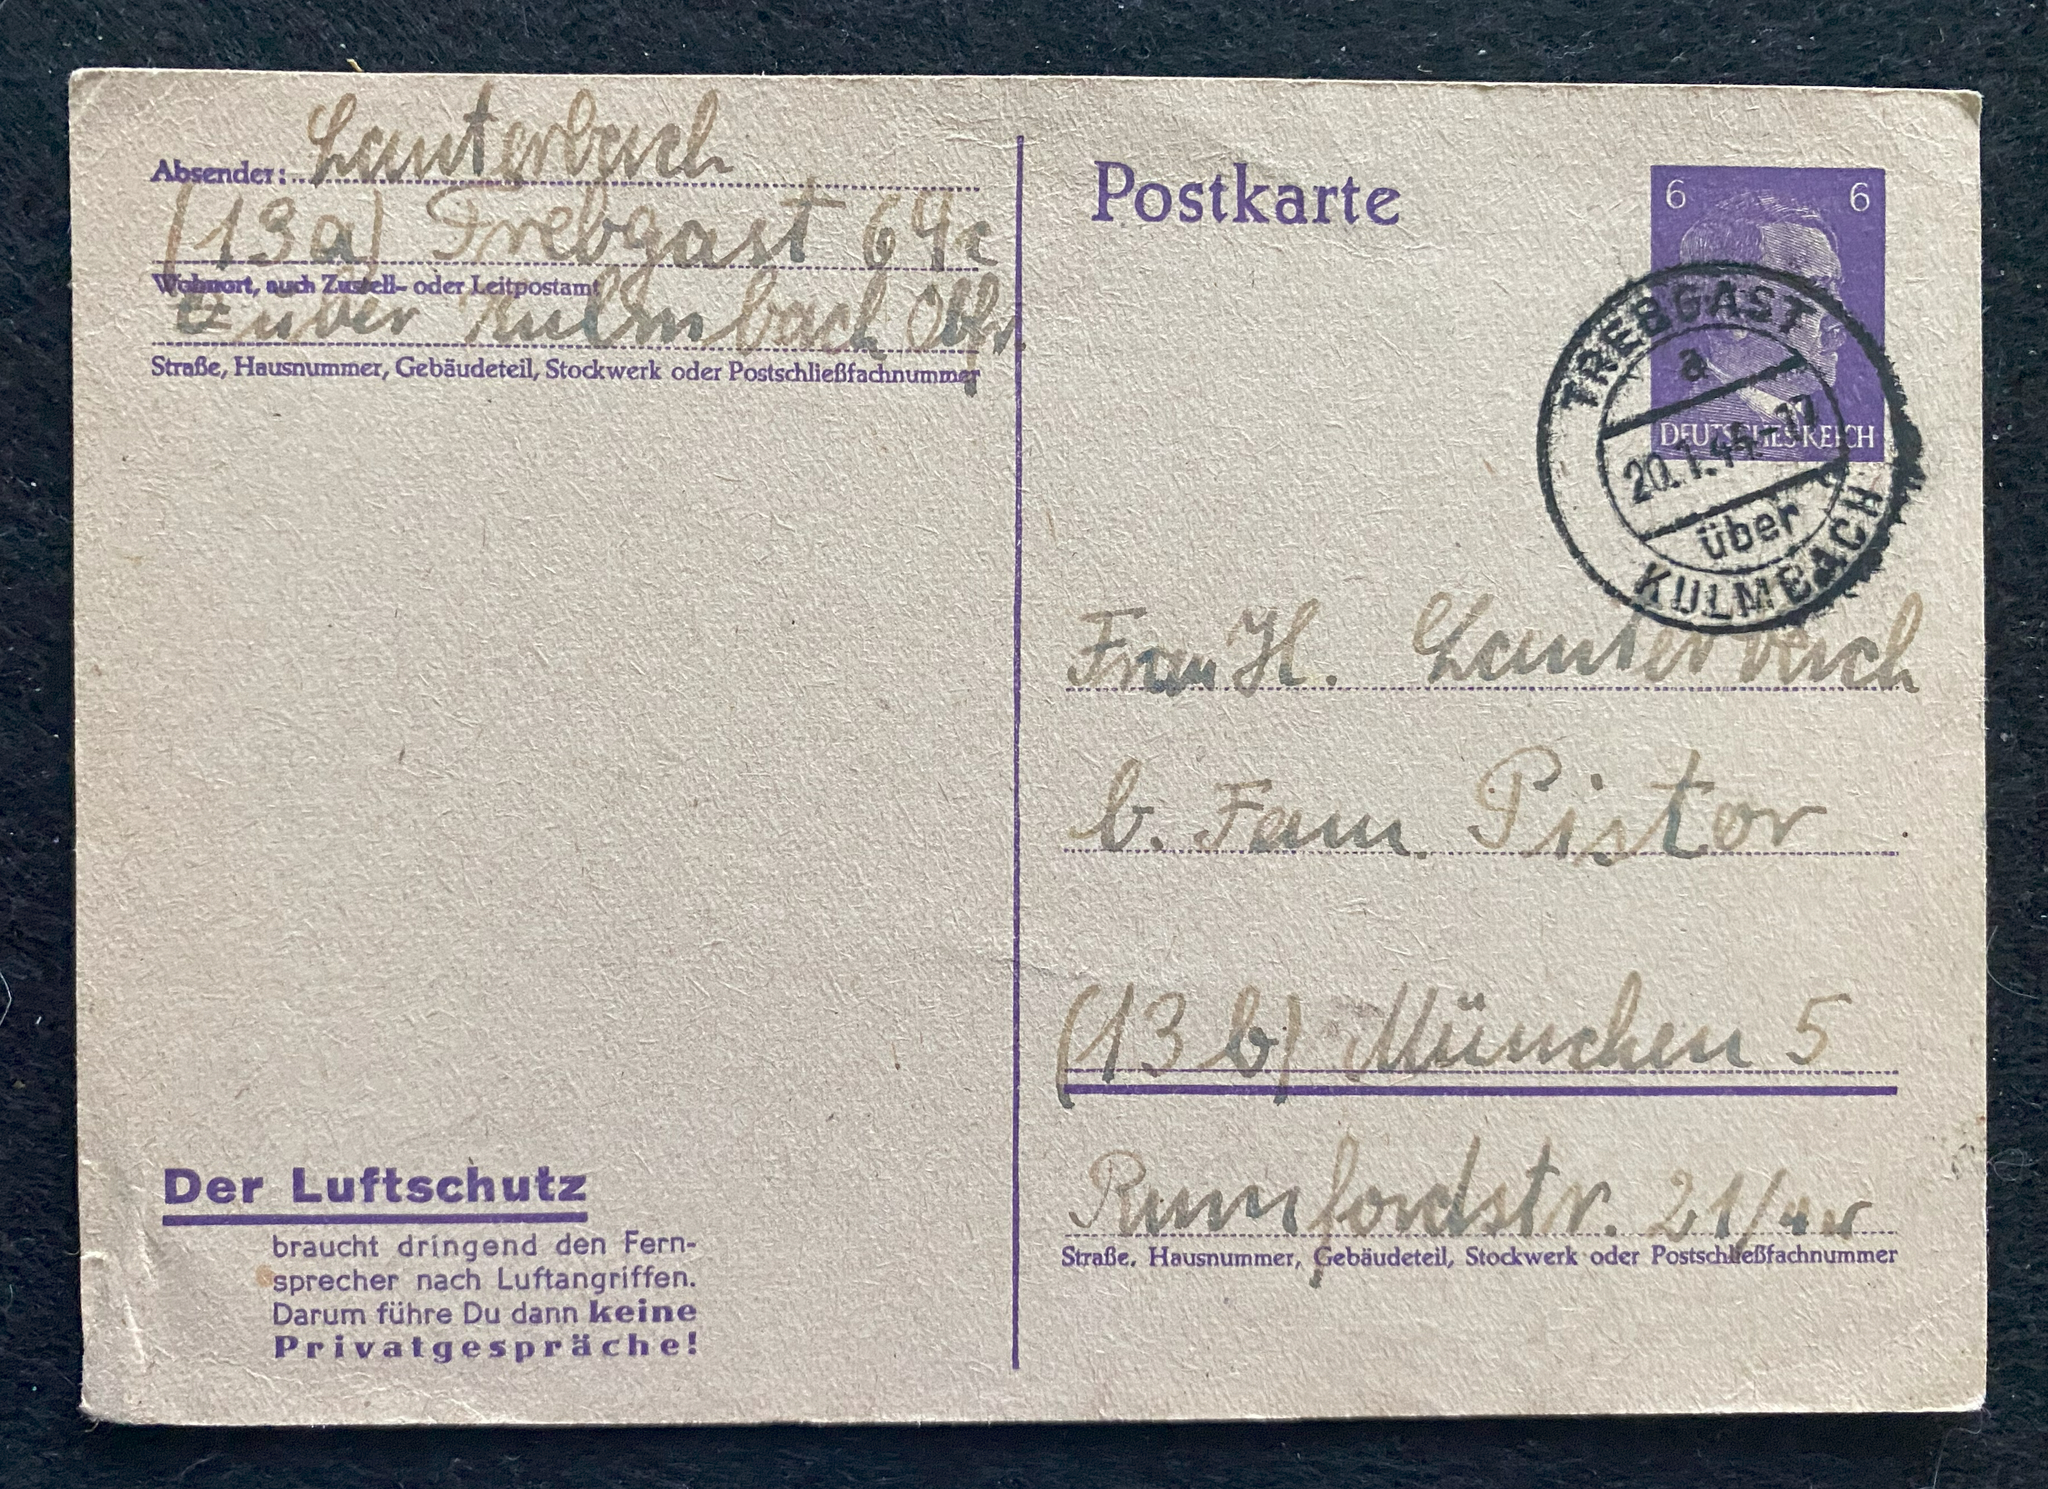 Absender: Lauterbach
(13a) Trebgast 64c
Wohnort, auch Zustell- oder Leitpostamt
über Kulmbach Obfr.
Straße, Hausnummer, Gebäudeteil, Stockwerk oder Postschließfachnummer
Der Luftschutz
braucht dringend den Fern-
sprecher nach Luftangriffen.
Darum führe Du dann keine
Privatgespräche!
Postkarte
6 6
DEUTSCHES REICH
TREBGAST
a
20.1.45-17
über
KULMBACH
Frau H. Lauterbach
b. Fam. Pistor
(13b) München 5
Rumfordstr. 21/
Straße, Hausnummer, Gebäudeteil, Stockwerk oder Postschließfachnummer